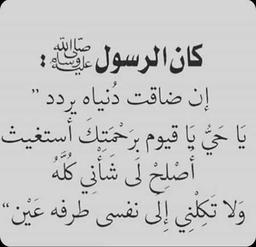 كان الرسول ﷺ :
إن ضاقت دُنياه يردد ”
يَا حَيُّ يَا قيوم برَحْمَتِكَ أستغيث
أَصْلِحْ لَى شَأْنِي كُلَّهُ
وَلا تَكِلْنِي إِلَى نفسى طرفه عَيْن“